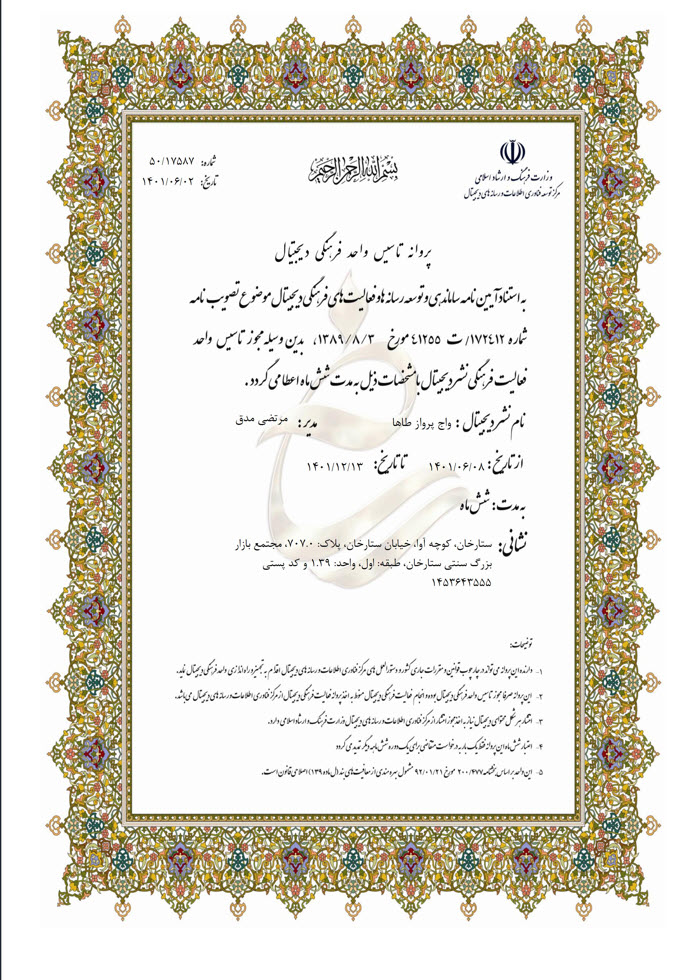 بسم الله الرحمن الرحیم
وزارت فرهنگ و ارشاد اسلامی
مرکز توسعه فناوری اطلاعات و رسانه های دیجیتال
شماره: ۵۰/۱۷۵۸۷
تاریخ: ۱۴۰۱/۰۶/۰۲
پروانه تاسیس واحد فرهنگی دیجیتال
به استناد آیین نامه ساماندهی و توسعه رسانه ها و فعالیت های فرهنگی دیجیتال موضوع تصویب نامه
شماره ۱۷۲۴۱۲/ ت ۴۱۲۵۵ مورخ ۱۳۸۹/۸/۳، بدین وسیله مجوز تاسیس واحد
فعالیت فرهنگی نشر دیجیتال با مشخصات ذیل به مدت شش ماه اعطا می گردد.
نام نشر دیجیتال: واج پرواز طاها مدیر: مرتضی مدق
از تاریخ: ۱۴۰۱/۰۶/۰۸ تا تاریخ: ۱۴۰۱/۱۲/۱۳
به مدت: شش ماه
نشانی: ستارخان، کوچه آوا، خیابان ستارخان، پلاک: ۷۰۷.۰، مجتمع بازار
بزرگ سنتی ستارخان، طبقه: اول، واحد: ۱.۳۹ و کد پستی
۱۴۵۳۶۴۳۵۵۵
توضیحات:
۱- دارنده این پروانه می تواند در چارچوب قوانین و مقررات جاری کشور و دستورالعمل های مرکز فناوری اطلاعات و رسانه های دیجیتال اقدام به تجهیز و راه اندازی واحد فرهنگی دیجیتال نماید.
۲- این پروانه صرفا مجوز تاسیس واحد فرهنگی دیجیتال بوده و انجام فعالیت فرهنگی دیجیتال منوط به اخذ پروانه فعالیت فرهنگی دیجیتال از مرکز فناوری اطلاعات و رسانه های دیجیتال می باشد.
۳- انتشار هر شکل محتوای دیجیتال نیاز به اخذ مجوز انتشار از مرکز فناوری اطلاعات و رسانه های دیجیتال وزارت فرهنگ و ارشاد اسلامی دارد.
۴- اعتبار شش ماه این پروانه فقط یک بار به درخواست متقاضی برای یک دوره شش ماهه دیگر تمدید می گردد
۵- این واحد بر اساس بخشنامه ۲۰۰/۴۷۷ مورخ ۹۲/۰۱/۲۱ مشمول بهره مندی از معافیت های بند (ل) ماده (۱۳۹) اصلاحی قانون است.